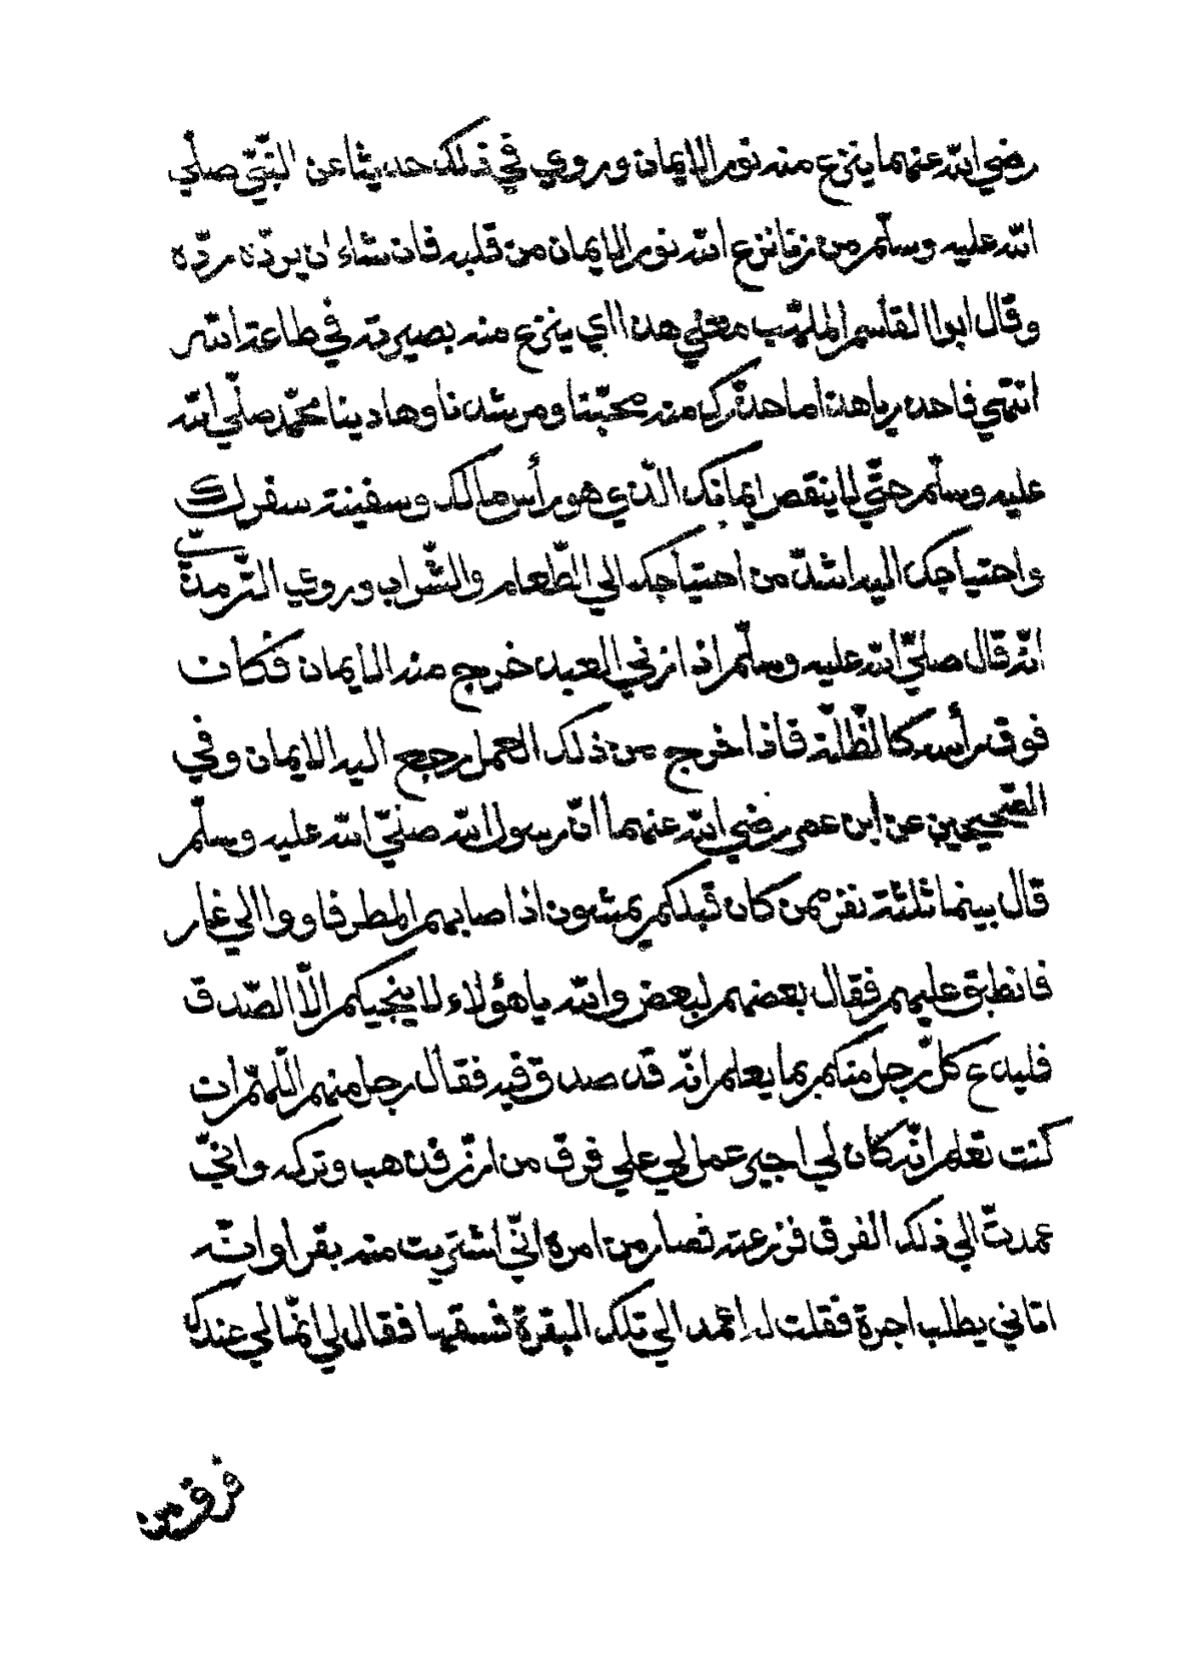 رضي الله عنهما ينزع منه نور الايمان وروي في ذلك حديثا عن النبّي صلّي
الله عليه وسلّم من زنا نزع الله نور الايمان من قلبه فان شاء ان يردّه ردّه
وقال ابوا القاسم المهلّب معني هذا اي ينزع منه بصيرته في طاعة الله
انتهي فاحذر ياهذا ما حذّرك منه محبّنا ومرشدنا وهادينا محمّد صلّي الله
عليه وسلّم حتّي لا ينقص ايمانك الّذي هو رأس مالك وسفينة سفرك
واحتياجك اليه اشدّ من احتياجك الي الطّعام والشّراب وروي التّرمذيّ
انّه قال صلّي الله عليه وسلّم اذا زني العبد خرج منه الايمان فكان
فوق رأسه كالظّلّة فاذا خرج من ذلك العمل رجع اليه الايمان وفي
الصّحيحين عن ابن عمر رضي الله عنهما انّ رسول الله صلّي الله عليه وسلّم
قال بينما ثلثة نفر ممن كان قبلكم يمشون اذا صابهم المطر فاووا الي غار
فانطبق عليهم فقال بعضهم لبعض والله ياهؤلاء لا ينجيكم الّا الصّدق
فليدع كلّ رجل منكم بما يعلم انّه قد صدق فيه فقال رجل منهم اللّهمّ ان
كنت تعلم انّه كان لي اجير عمل لي علي فرق من ارّز فذهب وتركه وانّي
عمدتّ الي ذلك الفرق فزرعته فصار من امره انّي اشتريت منه بقرا وانّه
اتاني يطلب اجرة فقلت له اعمد الي تلك البقرة فسقها فقال لي انّما لي عندك
فرق من